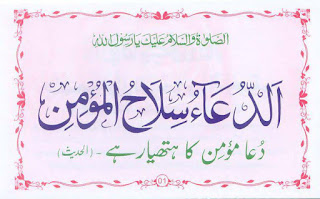 الصلوٰۃ والسلام علیک یا رسول اللہ
اَلدُّعَآءُ سِلَاحُ الْمُؤْمِنِ
دُعا مؤمِن کا ہتھیار ہے - (الحدیث)
01